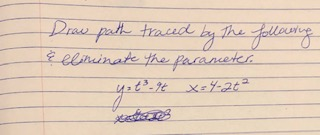 Draw path traced by The following
& eliminate the parameter.
y=t³-9t x=4-2t²